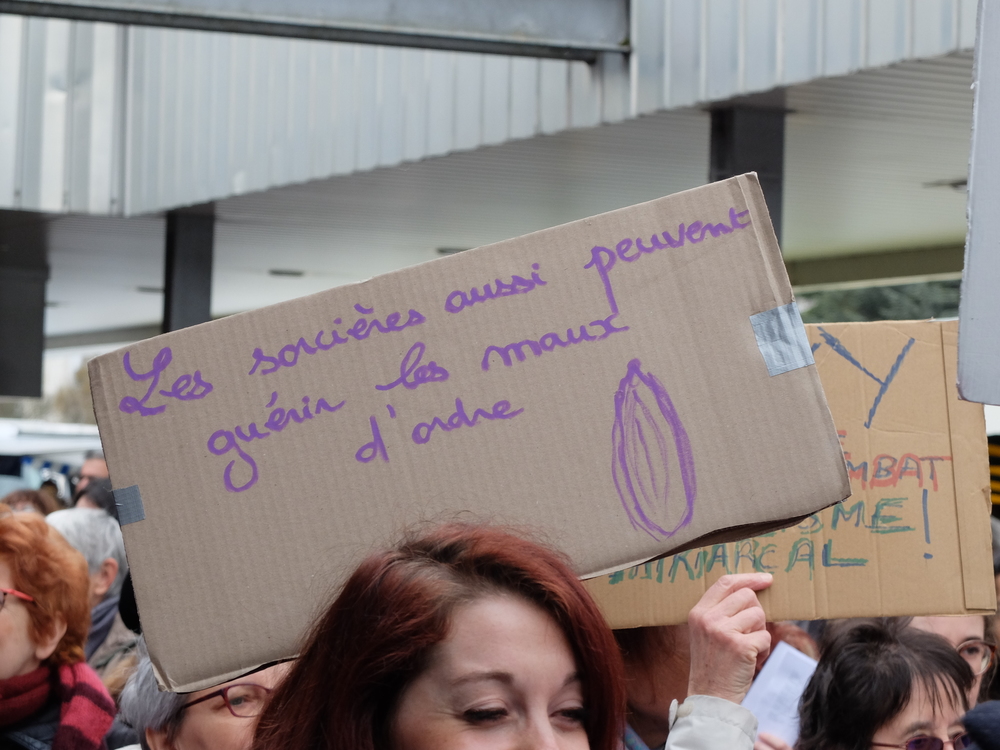 Les sorcières aussi peuvent
guérir les maux
d'ordre
Y
MBAT
SME !
TRIARCAL